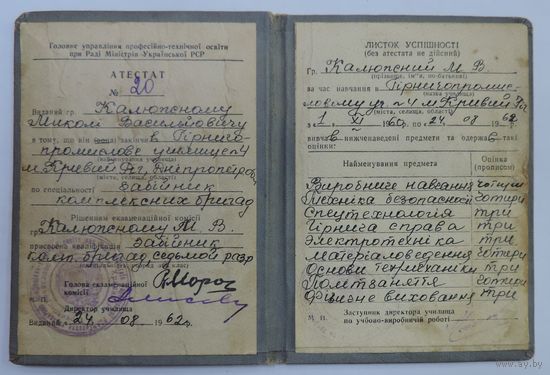 Головне управління професійно-технічної освіти
при Раді Міністрів Української РСР
АТЕСТАТ
№ 20
Виданий гр. Калюжному
Миколі Васильовичу
в тому, що він закінчив Гірничо-
промислове училище №4
м. Кривий Ріг, Дніпропетров
(місто, селище, область)
по спеціальності забійник
комплексних бригад
Рішенням екзаменаційної комісії
гр. Калюжному М. В.
присвоєна кваліфікація забійник
комп. бригад, седьмой разр
Голова екзаменаційної
комісії
М. П.
Директор училища
Виданий „24” 08 1962 г.
ЛИСТОК УСПІШНОСТІ
(без атестата не дійсний)
Гр. Калюжний М. В.
(прізвище, ім'я, по-батькові)
за час навчання в Гірничопромис-
(назва училища)
ловому уч. №4 м. Кривий Ріг
(місто, селище, область)
з 1 XI 1960 р. по 24. 08 1962
вивчив нижченаведені предмети та одержав такі
оцінки:
Найменування предмета
Оцінка
(прописом)
Виробниче навчання чотири
Техніка безопасности чотири
Спецтехнологія три
Гірнича справа три
Электротехніка три
Матеріаловедення чотири
Основи тех механіки три
Політзаняття чотири
Фізичне виховання три
Заступник директора училища
по учбово-виробничій роботі
М. П.
www.ay.by